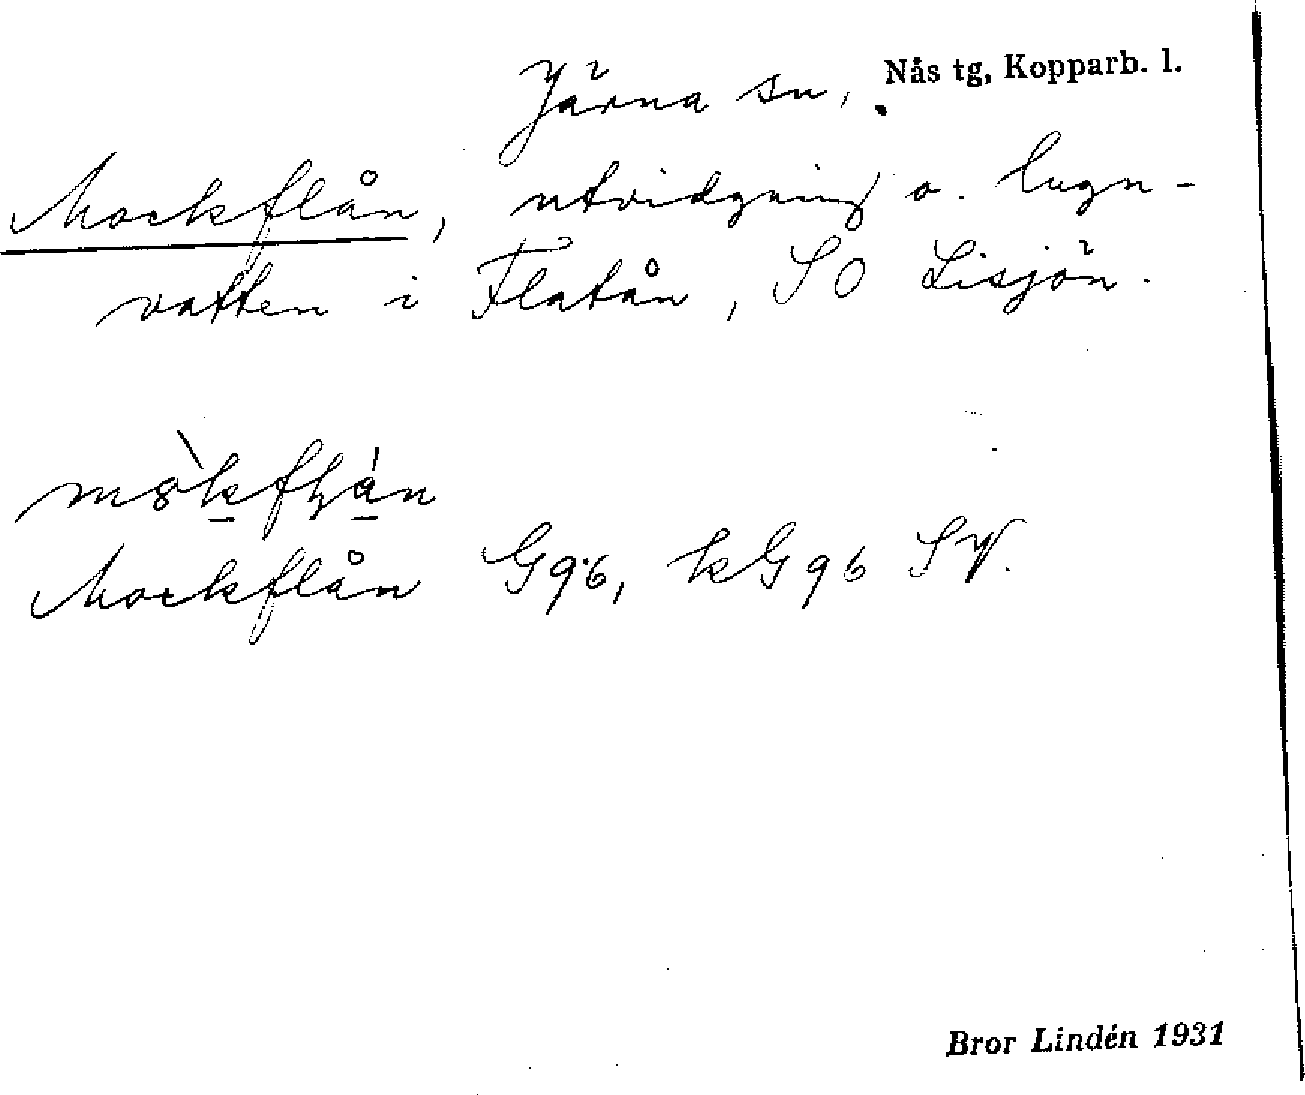 Järna sn, Nås tg, Kopparb. l.
Mockflån, utvidgning o. lugn-
vatten i Flatån, SO Lisjön.
Mockflån G96, kG96 SV.
Bror Lindén 1931